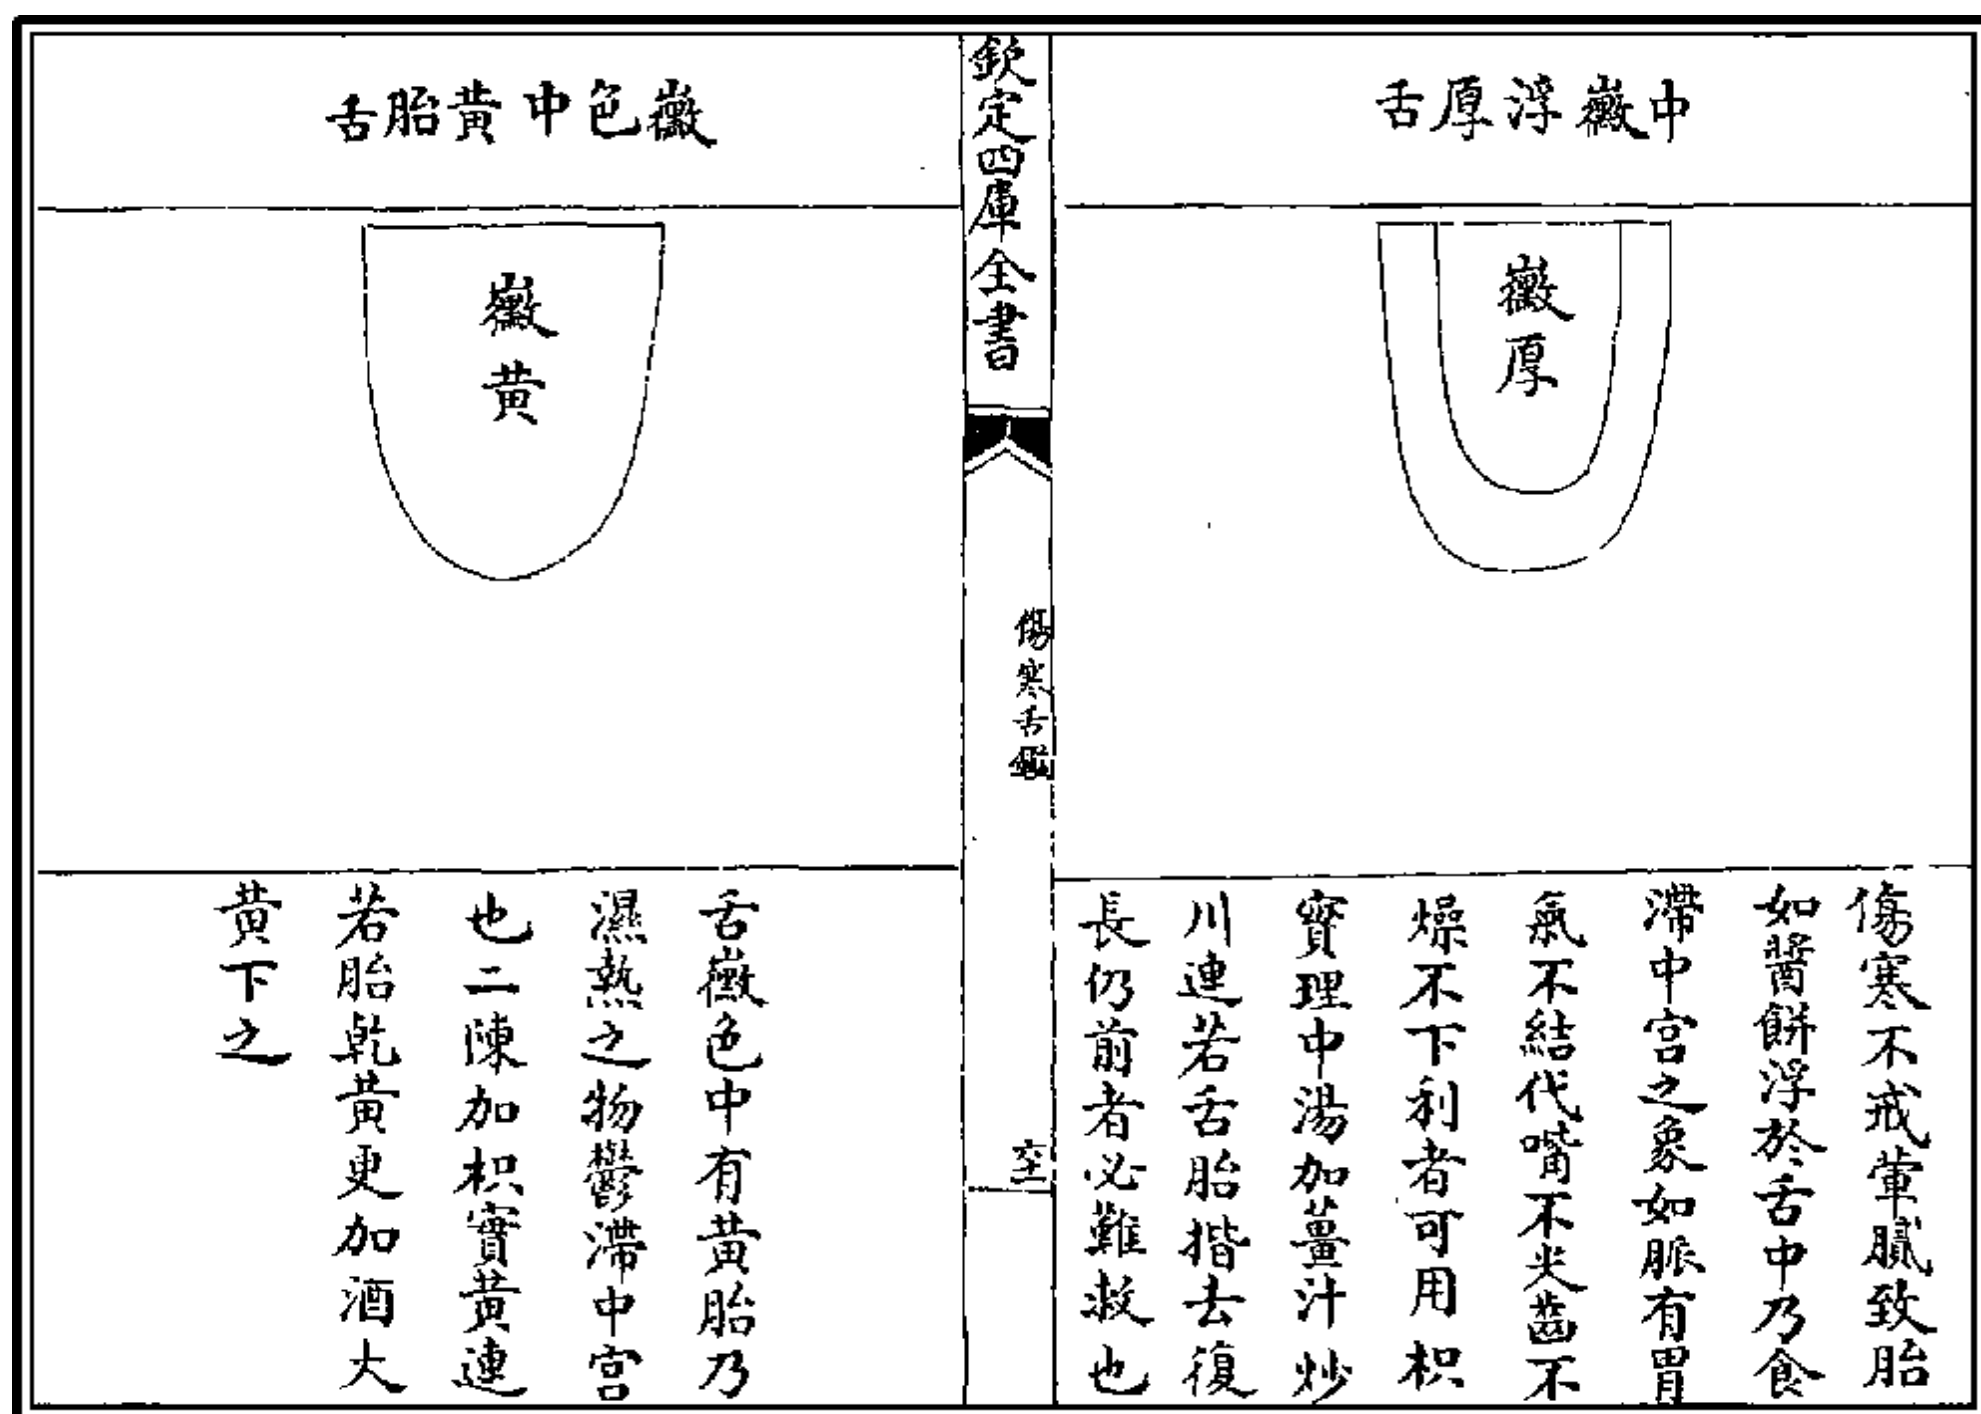 中黴浮厚舌
黴厚
傷寒不戒葷膩致胎
如醬餅浮於舌中乃食
滯中宮之象如脈有胃
氣不結代嘴不尖齒不
燥不下利者可用枳
實理中湯加薑汁炒
川連若舌胎揩去復
長仍前者必難救也
欽定四庫全書
傷寒舌鑑
黴色中黃胎舌
黴黃
舌黴色中有黃胎乃
濕熱之物鬱滯中宮
也二陳加枳實黃連
若胎乾黃更加酒大
黃下之